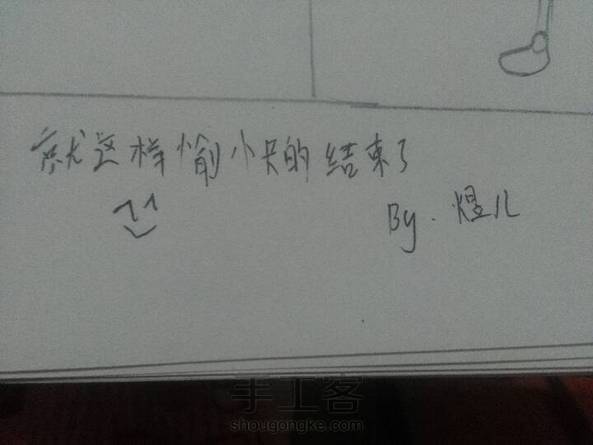 就这样愉快的结束了
By. 煜儿
手工客
shougongke.com